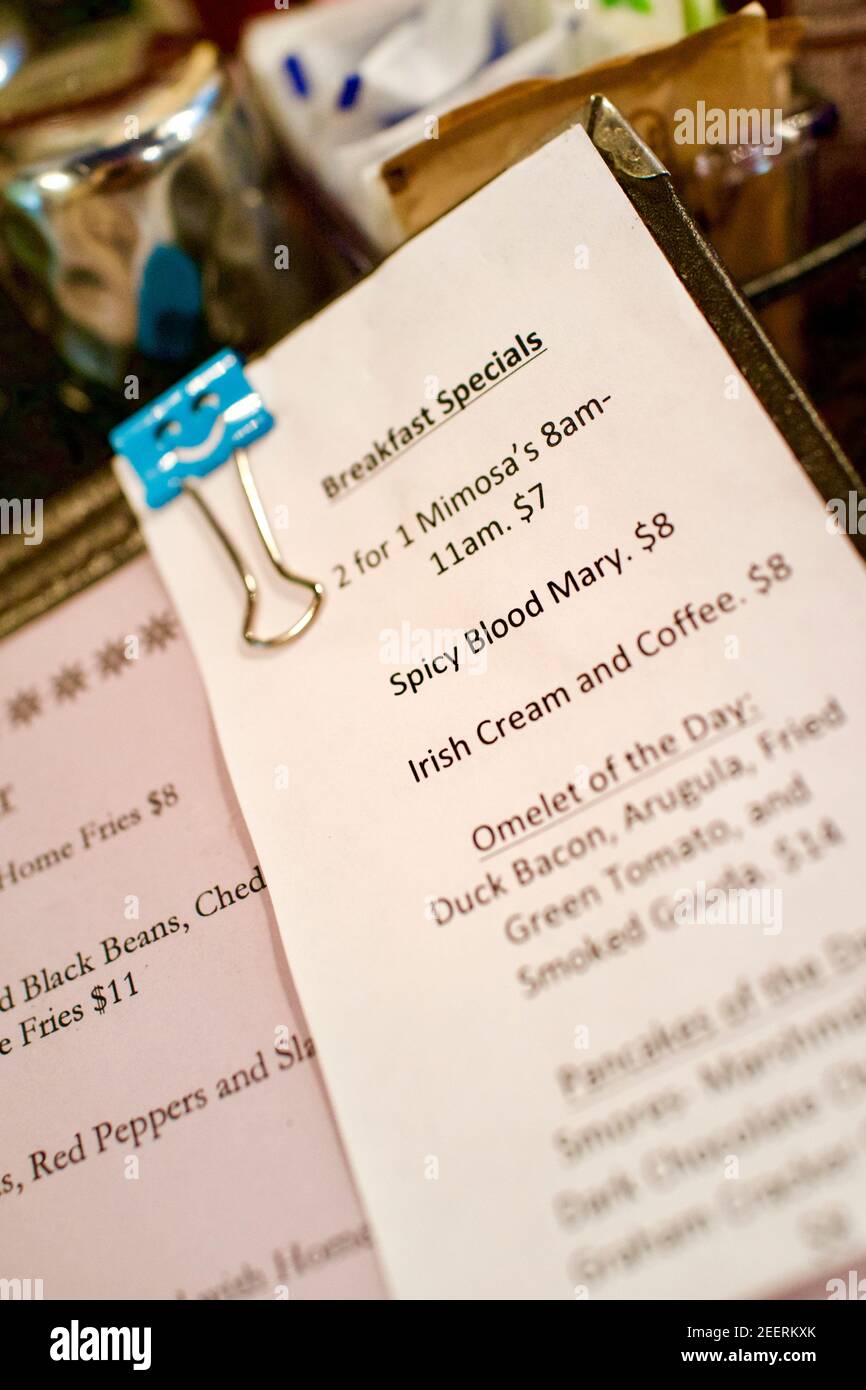 Breakfast Specials
2 for 1 Mimosa's 8am-
11am. $7
Spicy Blood Mary. $8
Irish Cream and Coffee. $8
Omelet of the Day:
Duck Bacon, Arugula, Fried
Green Tomato, and
Smoked Gouda. $14
Pancakes of the
Smores- 
Dark Chocolate
Graham
Home Fries $8
Black Beans, Ched
Fries $11
Red Peppers and
with Home
alamy
Image ID: 2EERKXK
www.alamy.com